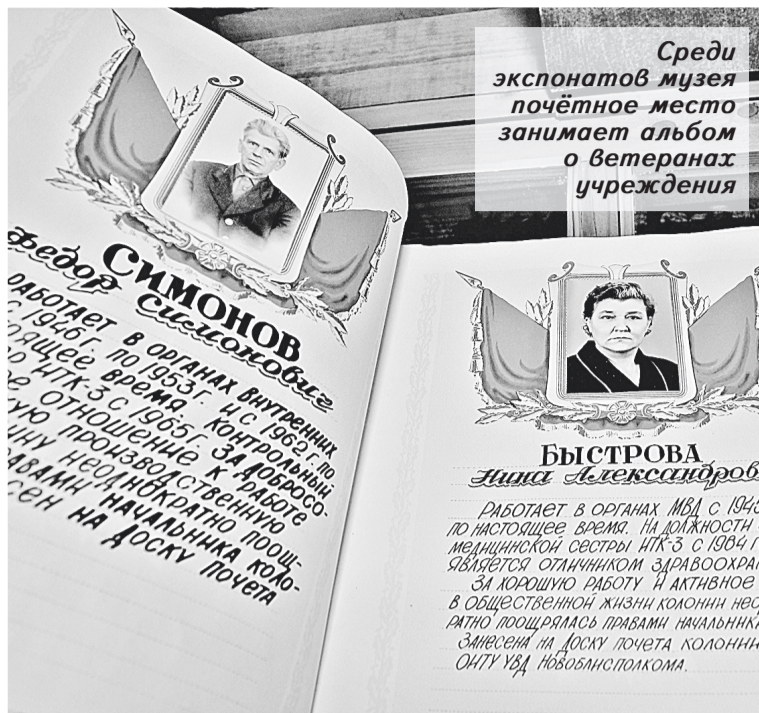 Среди
экспонатов музея
почётное место
занимает альбом
о ветеранах
учреждения
СИМОНОВ
Федор Симонович
РАБОТАЕТ В ОРГАНАХ ВНУТРЕННИХ
С 1946 Г. ПО 1953 Г. И С 1962 Г. ПО
ВРЕМЯ. КОНТРОЛЬНЫЙ
ИТК-3 С 1965 Г. ЗА ДОБРОСО-
ОТНОШЕНИЕ К РАБОТЕ
ПРОИЗВОДСТВЕННУЮ
НЕОДНОКРАТНО ПООЩ-
НАЧАЛЬНИКА КОЛО-
НА ДОСКУ ПОЧЕТА
БЫСТРОВА
Нина Александров
РАБОТАЕТ В ОРГАНАХ МВД С
ПО НАСТОЯЩЕЕ ВРЕМЯ. НА ДОЛЖНОСТИ
МЕДИЦИНСКОЙ СЕСТРЫ ИТК-3 С 1964 Г
ЯВЛЯЕТСЯ ОТЛИЧНИКОМ ЗДРАВООХРАН
ЗА ХОРОШУЮ РАБОТУ И АКТИВНОЕ
В ОБЩЕСТВЕННОЙ ЖИЗНИ КОЛОНИИ НЕО
РАТНО ПООЩРЯЛАСЬ ПРАВАМИ НАЧАЛЬНИКА
ЗАНЕСЕНА НА ДОСКУ ПОЧЕТА КОЛОНИИ
ОИТУ УВД НОВОБЛИСПОЛКОМА.